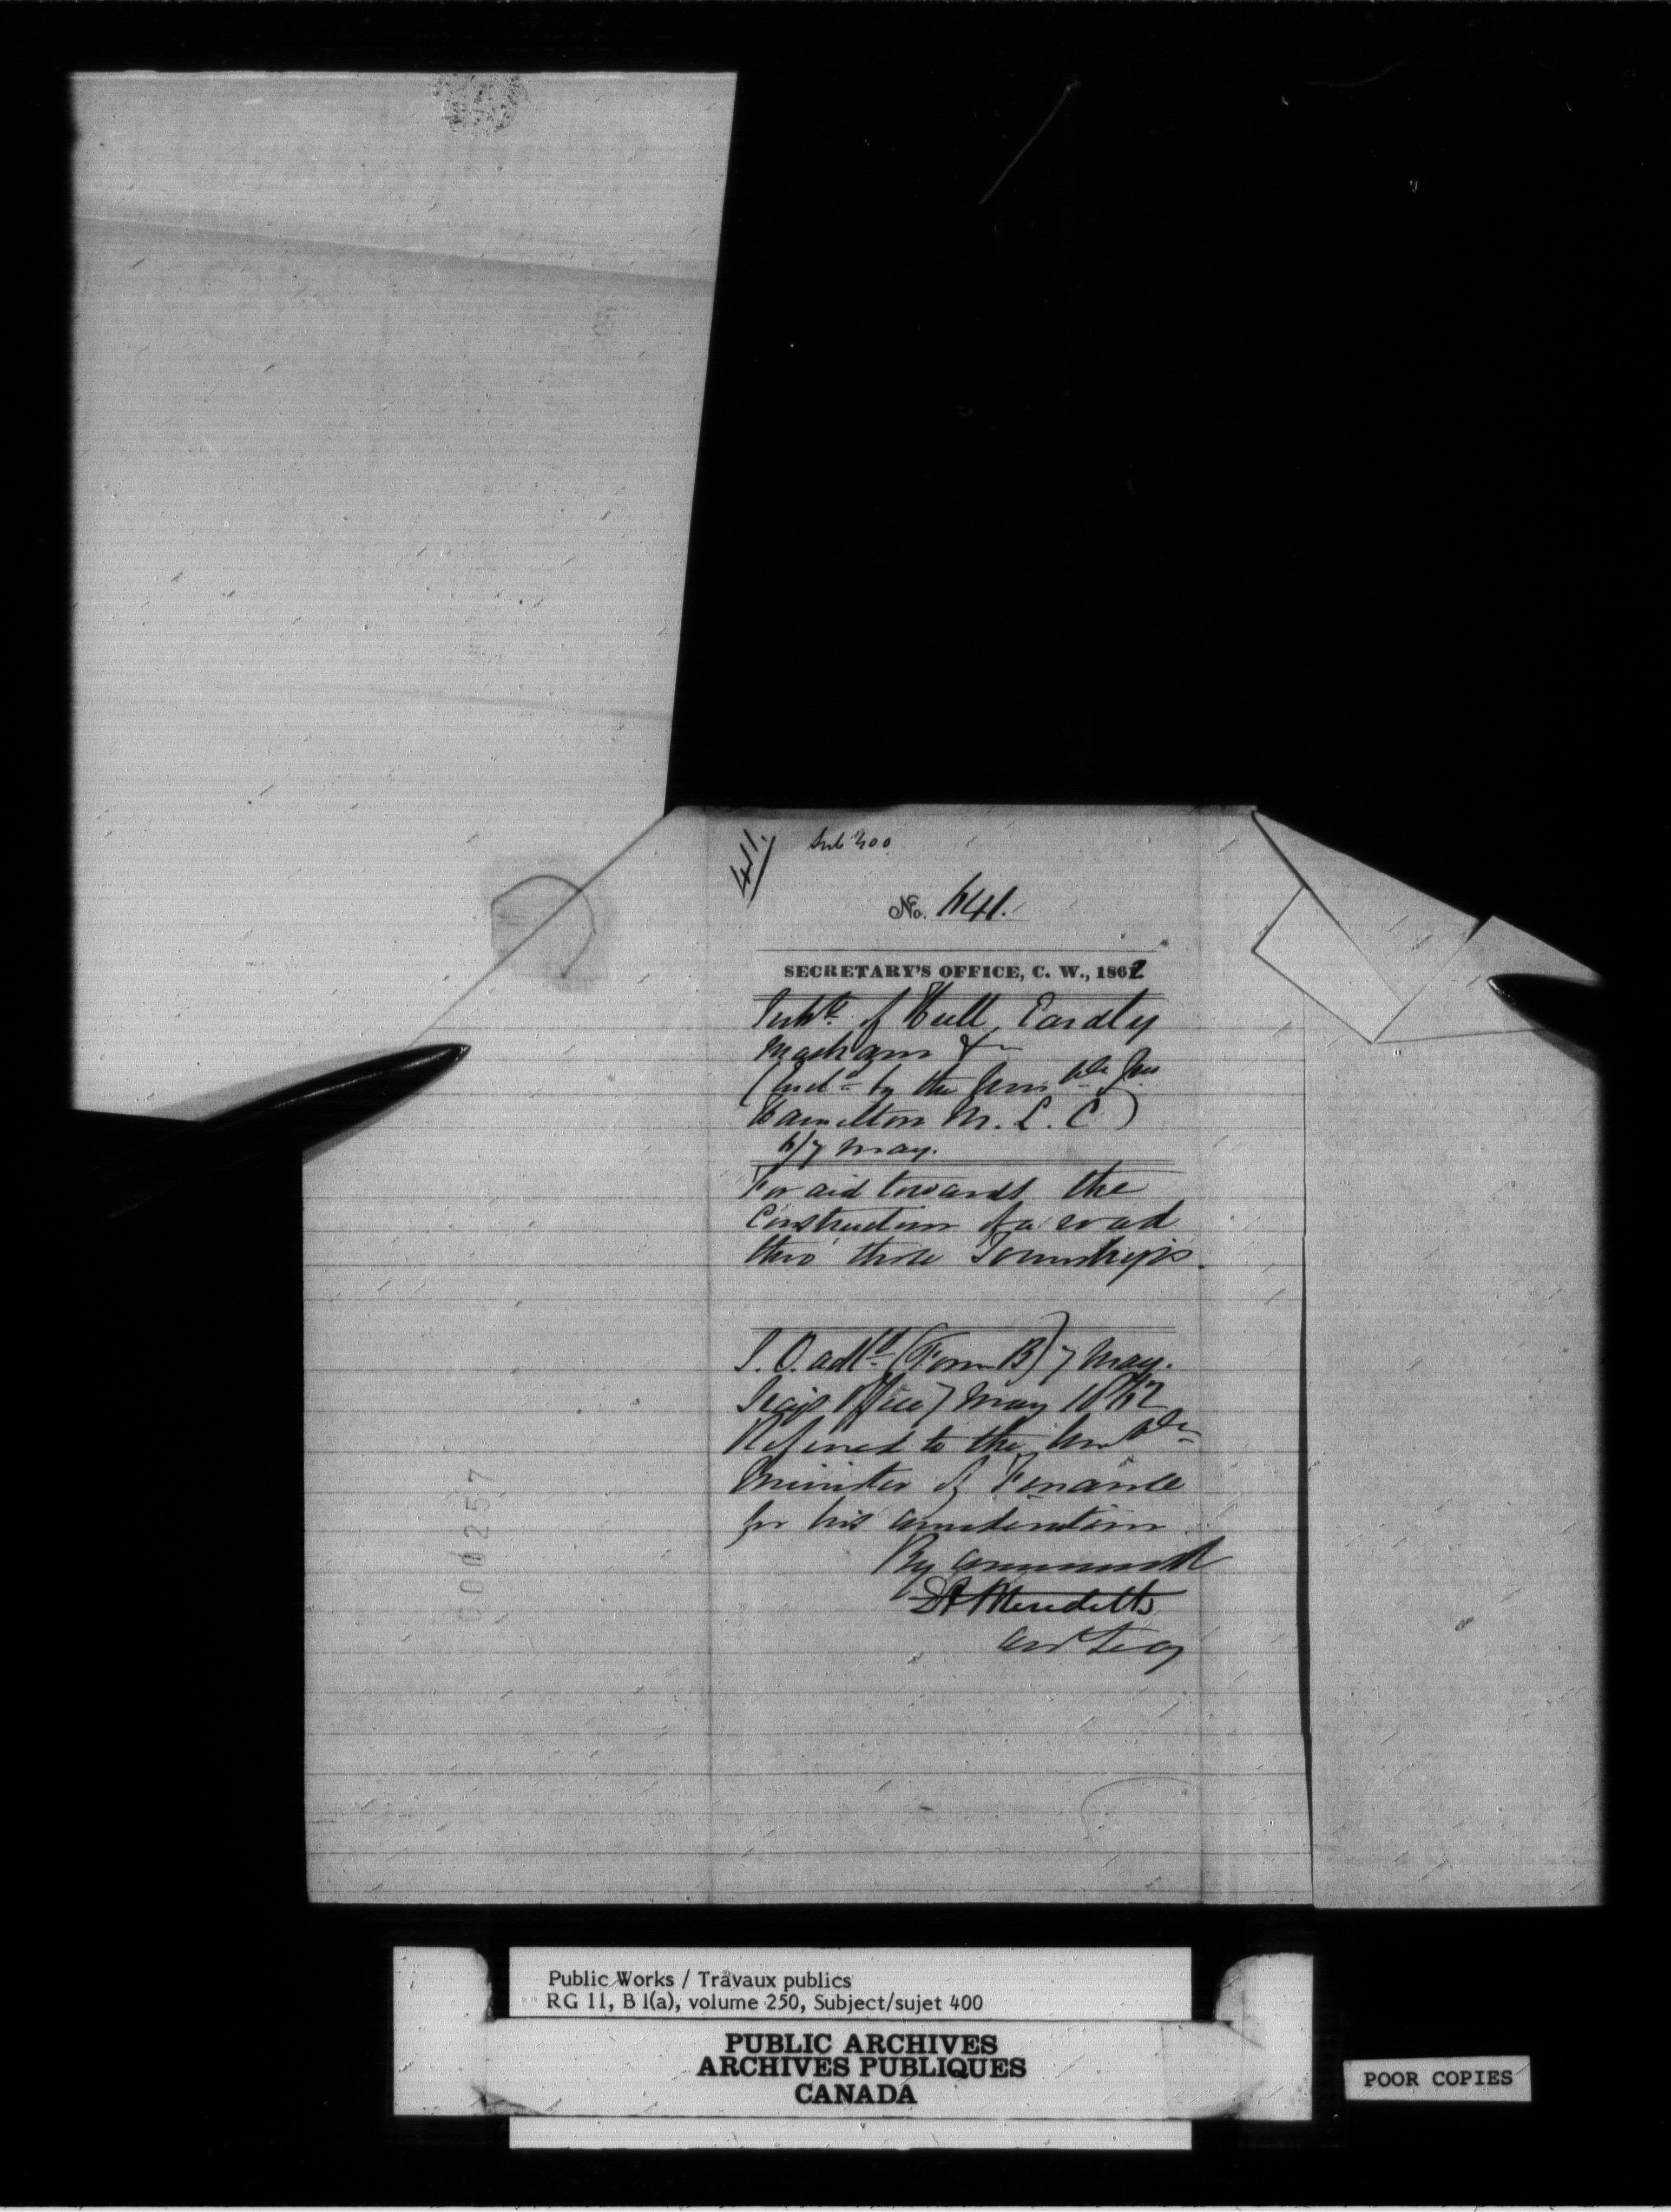 641.
Sub 400
No. 641.
SECRETARY'S OFFICE, C. W., 1862
Inhts. of Hull, Eardly
Masham &c
(Encd. by the Honble Jno
Hamilton M. L. C)
6/7 May.
For aid towards the
Construction of a road
thro' those Townships.
(Form B) 7 May.
Secy's Office 7 May 1862
Referred to the Honble
Minister of Finance
for his consideration
By Command
Meredith
Asst Secy
000257
Public Works / Travaux publics
RG 11, B 1(a), volume 250, Subject/sujet 400
PUBLIC ARCHIVES
ARCHIVES PUBLIQUES
CANADA
POOR COPIES